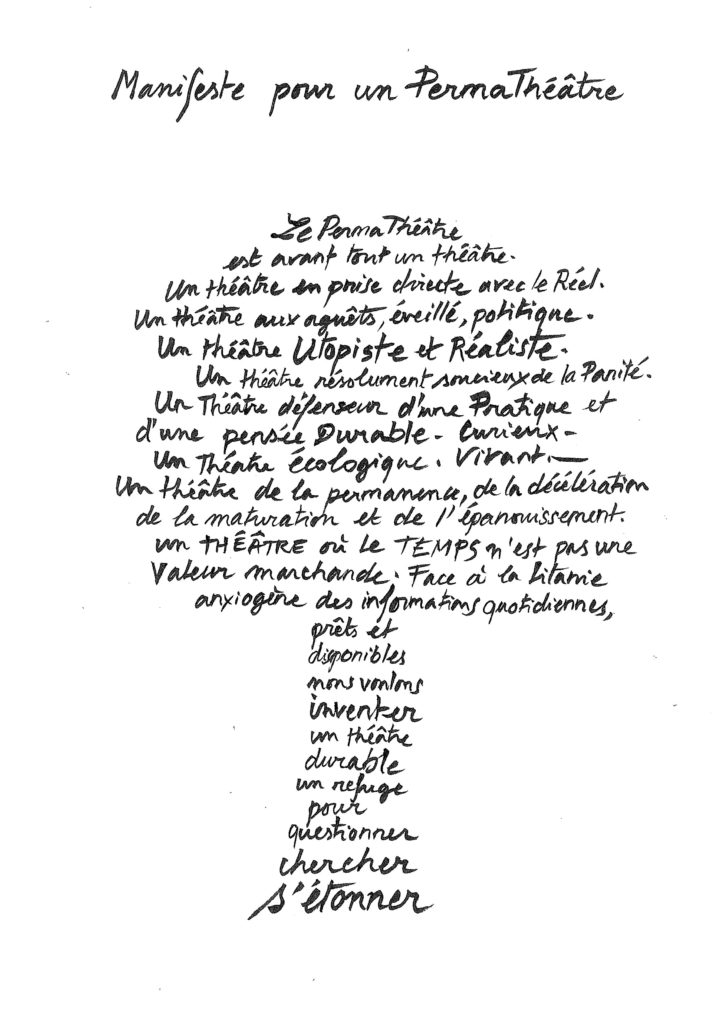 Manifeste pour un PermaThéâtre
Le PermaThéâtre
est avant tout un théâtre.
Un théâtre en prise directe avec le Réel.
Un théâtre aux aguêts, éveillé, politique.
Un théâtre Utopiste et Réaliste.
Un théâtre résolument soucieux de la Parité.
Un Théâtre défenseur d'une Pratique et
d'une pensée Durable. Curieux -
Un Théâtre écologique. Vivant. —
Un théâtre de la permanence, de la décélération
de la maturation et de l'épanouissement.
un THÉÂTRE où le TEMPS n'est pas une
Valeur marchande. Face à la Litanie
anxiogène des informations quotidiennes,
prêts et
disponibles
nous voulons
inventer
un théâtre
durable
un refuge
pour
questionner
chercher
s'étonner